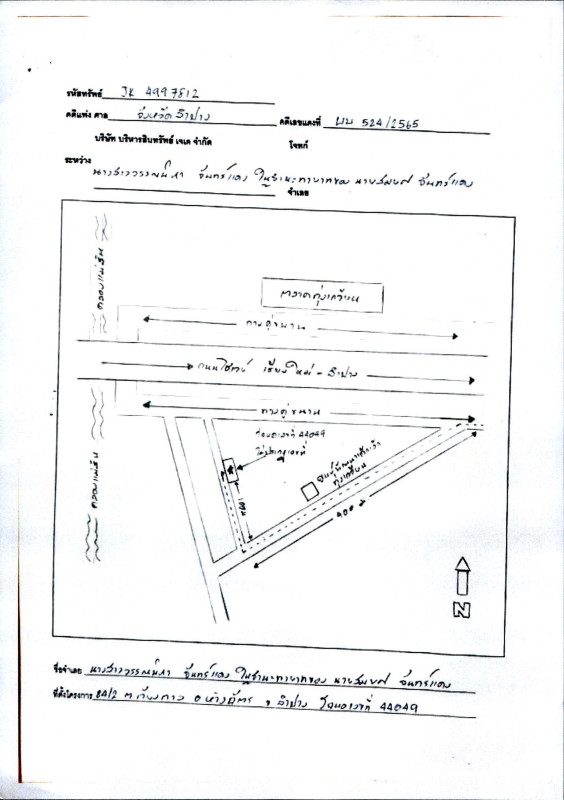 รหัสทรัพย์ JK 4997812
คดีแพ่ง ศาล จังหวัดลำปาง คดีเลขแดงที่ ผบ 524/2565
บริษัท บริหารสินทรัพย์ เจเค จำกัด โจทก์
ระหว่าง
นางสาววรรณนิหา จันทร์แดง ในฐานะทายาทของ นายสมยศ จันทร์แดง
จำเลย
คลองแม่ตีบ
ตลาดทุ่งเกวียน
ทางคู่ขนาน
ถนนไฮเวย์ เชียงใหม่ - ลำปาง
ทางคู่ขนาน
โฉนดเลขที่ 44049
ไม่ปรากฏเลขที่
คลองแม่ตีบ
ศูนย์พัฒนาเด็กเล็ก
ทุ่งเกวียน
900 ม
N
ชื่อจำเลย นางสาววรรณนิหา จันทร์แดง ในฐานะทายาทของ นายสมยศ จันทร์แดง
ที่ตั้งโครงการ 84/2 ต เวียงตาล อ ห้างฉัตร จ ลำปาง โฉนดเลขที่ 44049